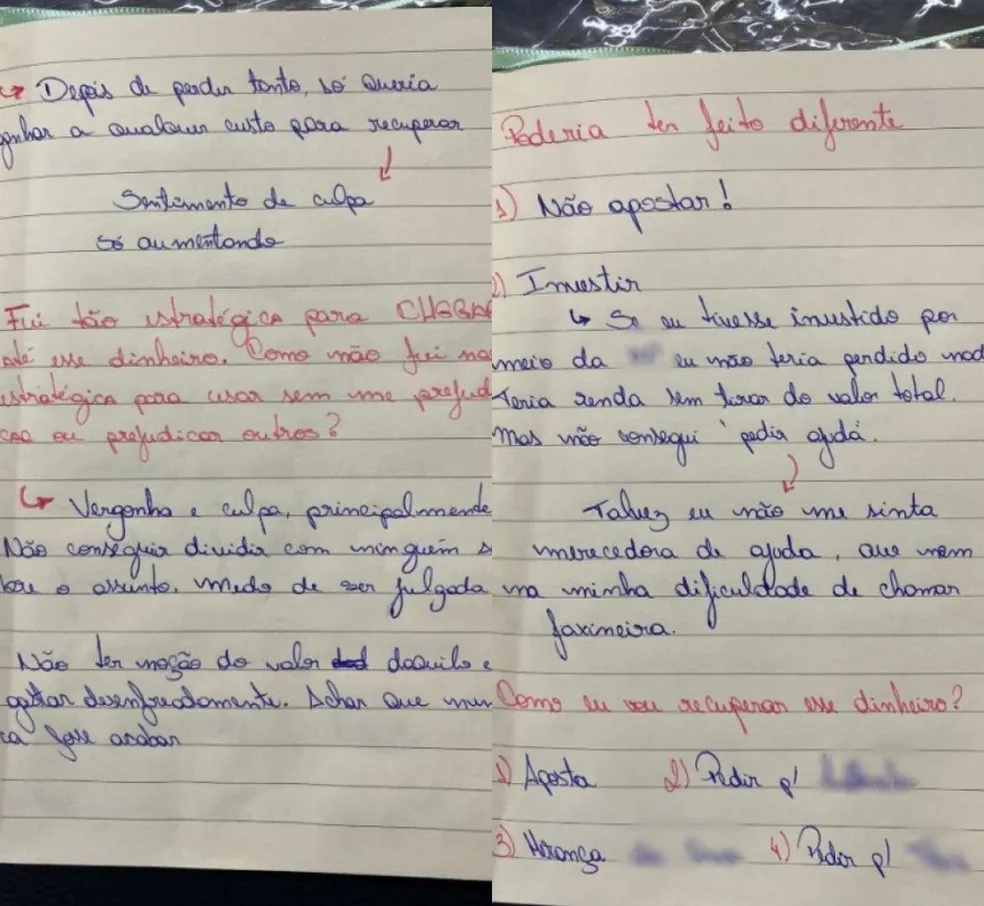 ↳ Depois de perder tanto, só queria
ganhar a qualquer custo para recuperar
↓
Sentimento de culpa
só aumentando
Fui tão estratégica para CHEGAR
até esse dinheiro. Como não fui na
estratégica para usar sem me prejud
car ou prejudicar outros?
↳ Vergonha e culpa, principalmente
Não conseguia dividir com ninguém s
bre o assunto. medo de ser julgada
Não ter noção do valor daquilo e
gastar desenfreadamente. Achar que nun
ca fosse acabar
Poderia ter feito diferente
1) Não apostar!
2) Investir
↳ Se eu tivesse investido por
meio da eu não teria perdido nad
Teria renda sem tirar do valor total.
Mas não consegui 'pedir ajuda'.
↓
Talvez eu não me sinta
merecedora de ajuda, que nem
na minha dificuldade de chamar
faximeira.
Como eu vou recuperar esse dinheiro?
1) Aposta 2) Pedir p/
3) Herança 4) Pedir p/